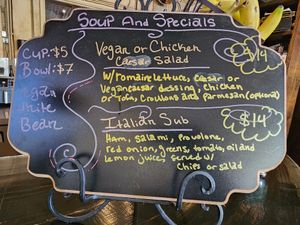 Soup And Specials
Cup: $5
Bowl: $7
Vegan
White
Bean
Vegan or Chicken
Caesar Salad
$14
W/romaine lettuce, Caesar or
Vegan caesar dressing, chicken
or Tofu, Croutons and parmesan (optional)
Italian Sub
$14
Ham, salami, provolone,
red onion, greens, tomato, oil and
lemon juice, served w/
Chips or salad